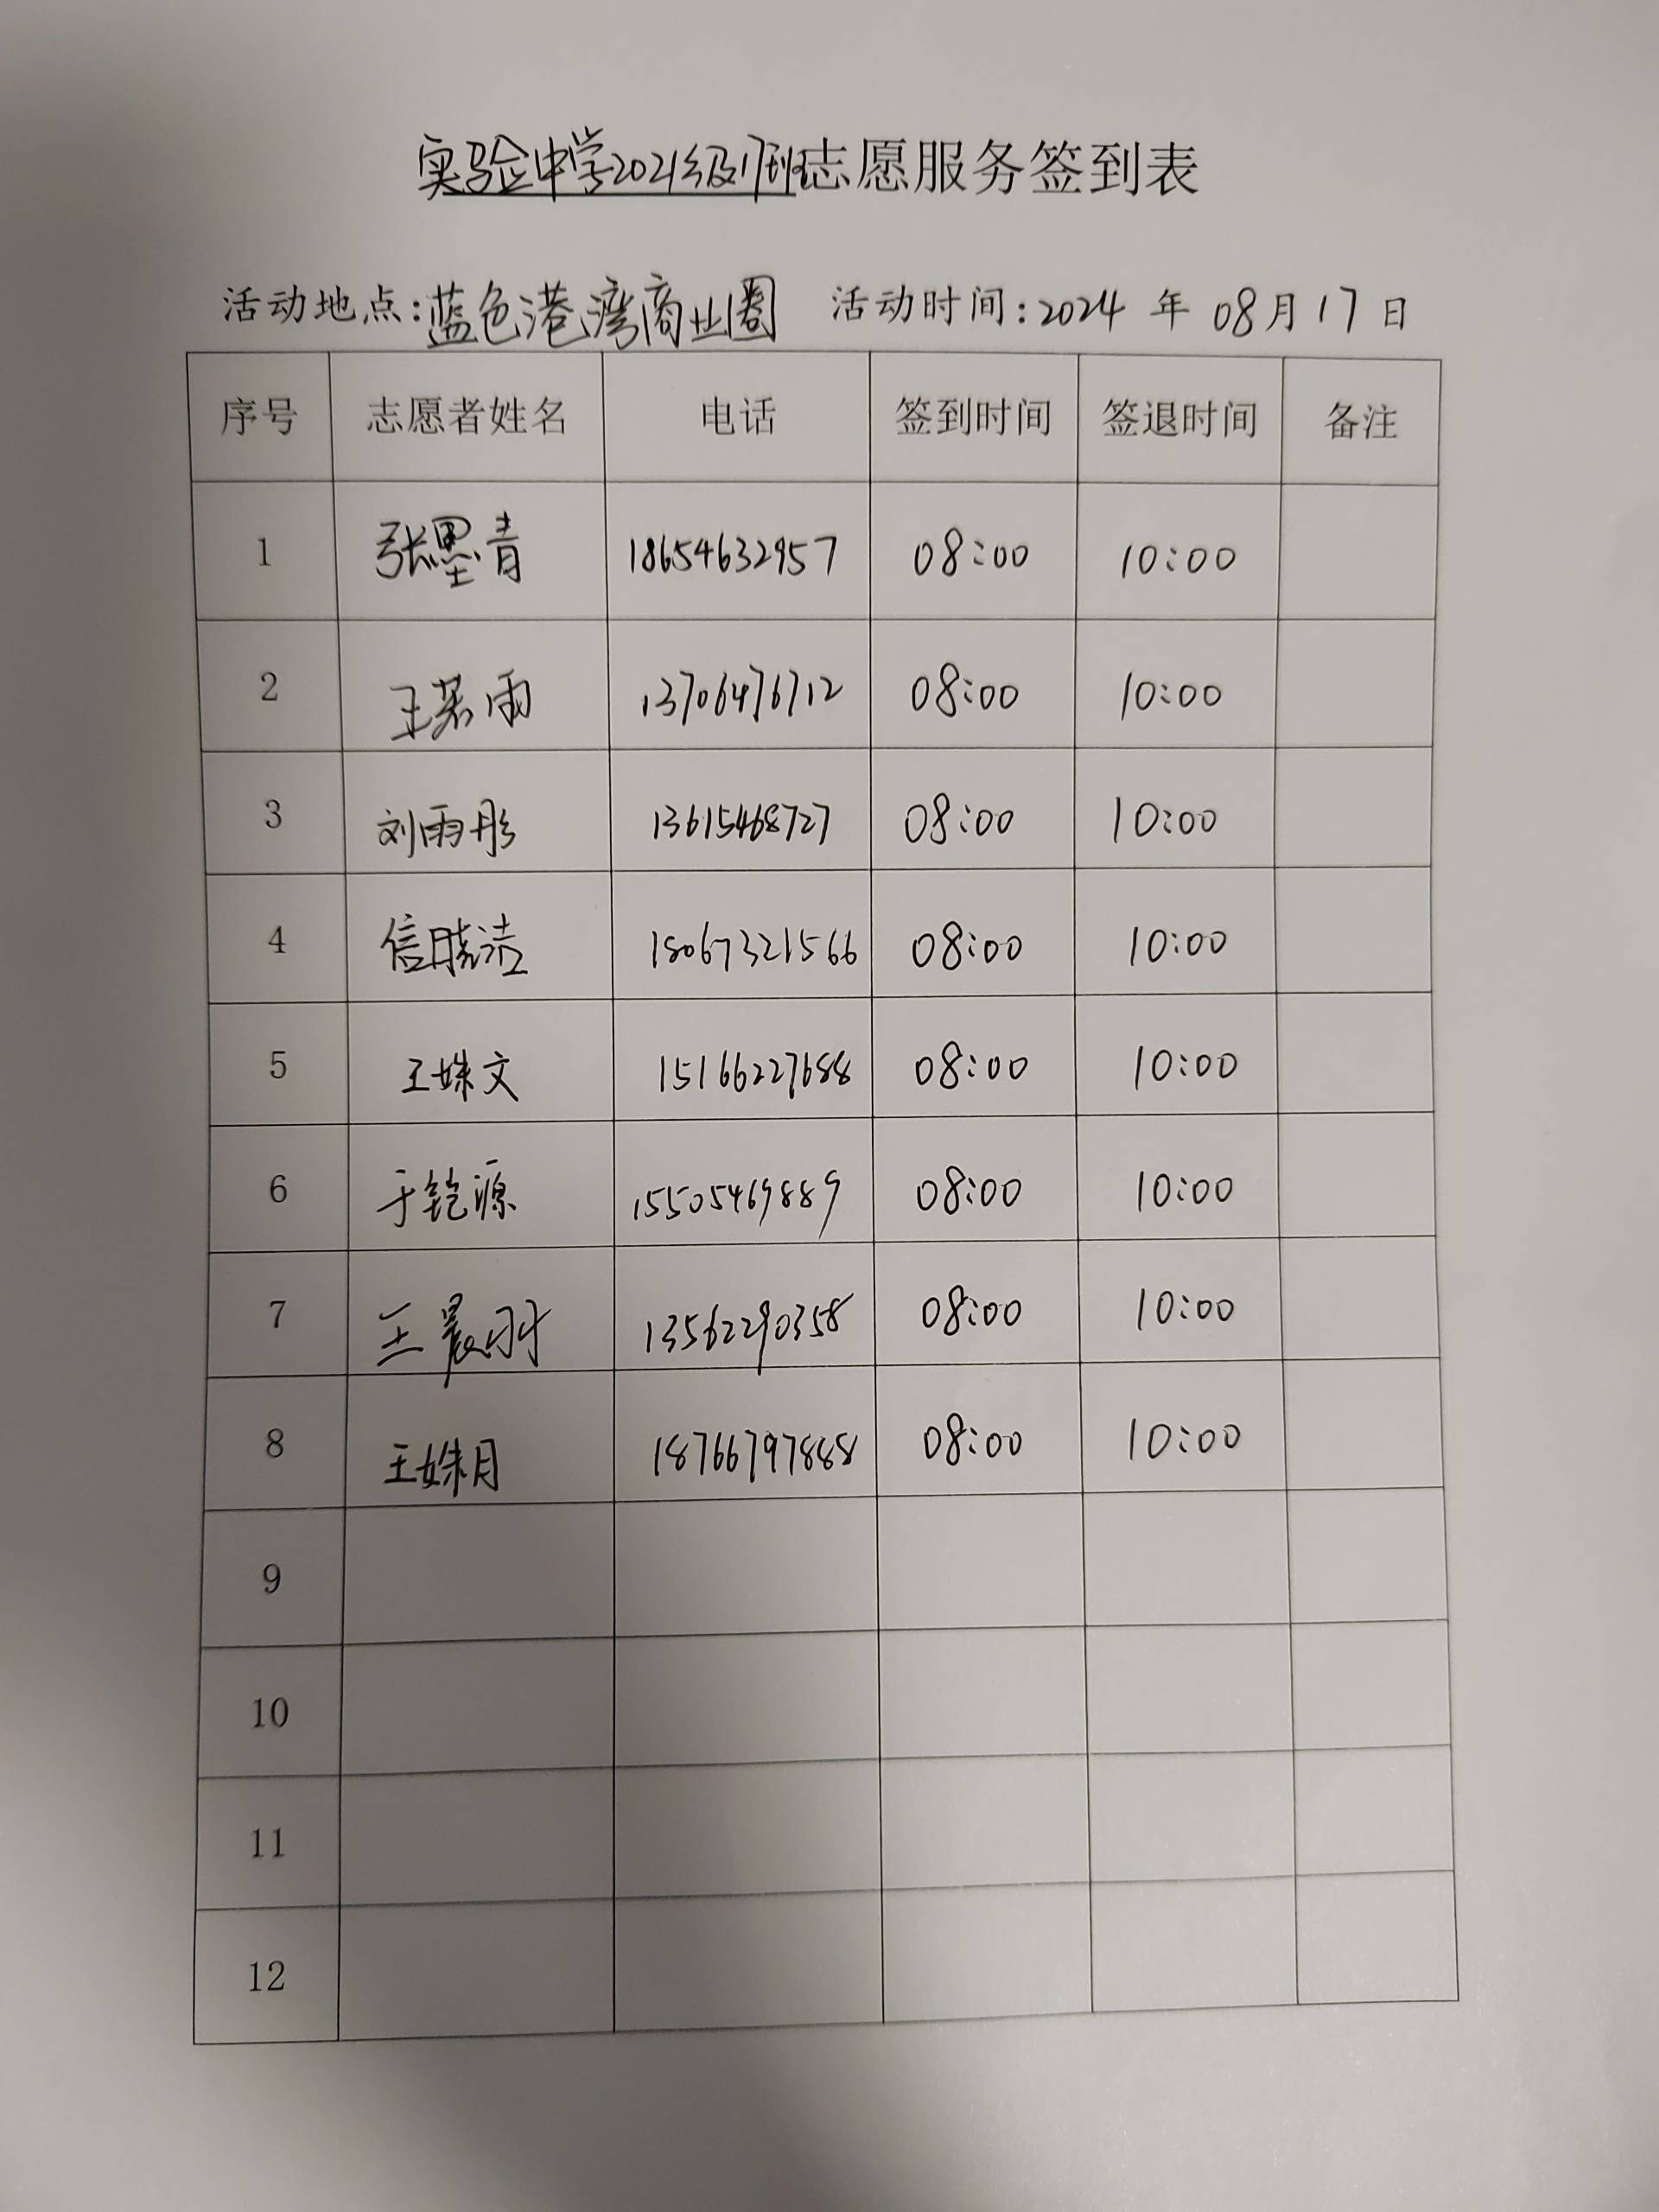 实验中学2021级17班志愿服务签到表
活动地点:蓝色港湾商业圈 活动时间:2024 年 08月17日
序号 志愿者姓名 电话 签到时间 签退时间 备注
1 张墨青 18654632957 08:00 10:00
2 王若雨 13706476712 08:00 10:00
3 刘雨彤 13615468727 08:00 10:00
4 信晓洁 18067321566 08:00 10:00
5 王姝文 15166227688 08:00 10:00
6 于铠源 15505469889 08:00 10:00
7 王晨 13562290358 08:00 10:00
8 王姝月 18766797888 08:00 10:00
9
10
11
12